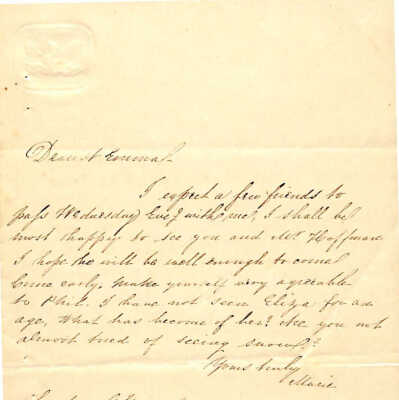 Dearest Emma.
I expect a few friends to
pass Wednesday Eve'g with me, I shall be
most happy to see you and Mr Hoffman
I hope he will be well enough to come
Come early. Make yourself very agreeable
to Phil. I have not seen Eliza for an
age, What has become of her? Are you not
almost tired of seeing snow?
Yours truly
Marie